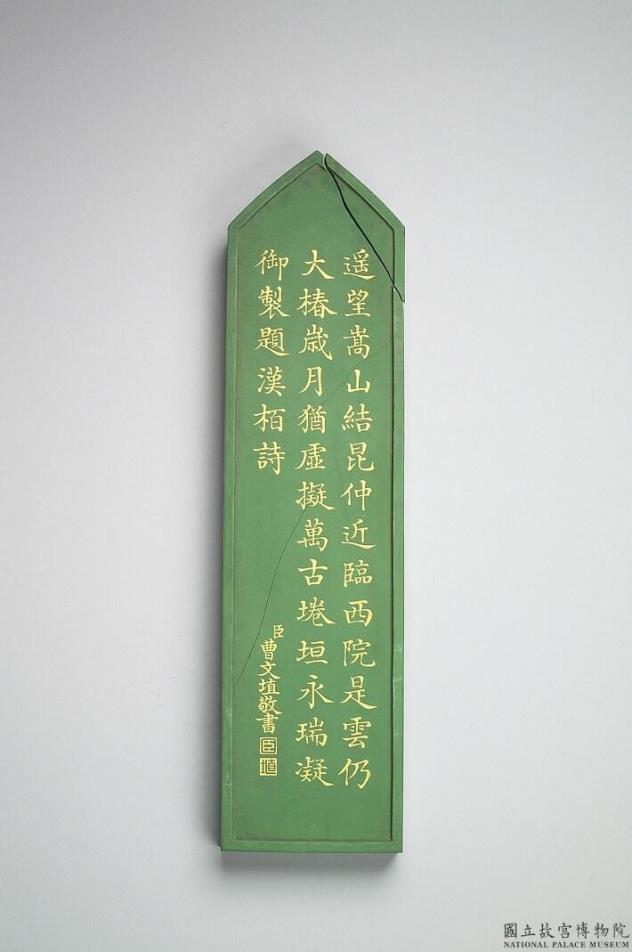 遥望嵩山結昆仲近臨西院是雲仍
大椿歳月猶虛擬萬古埢垣永瑞凝
御製題漢栢詩
臣曹文埴敬書
臣
埴
國立故宮博物院
NATIONAL PALACE MUSEUM